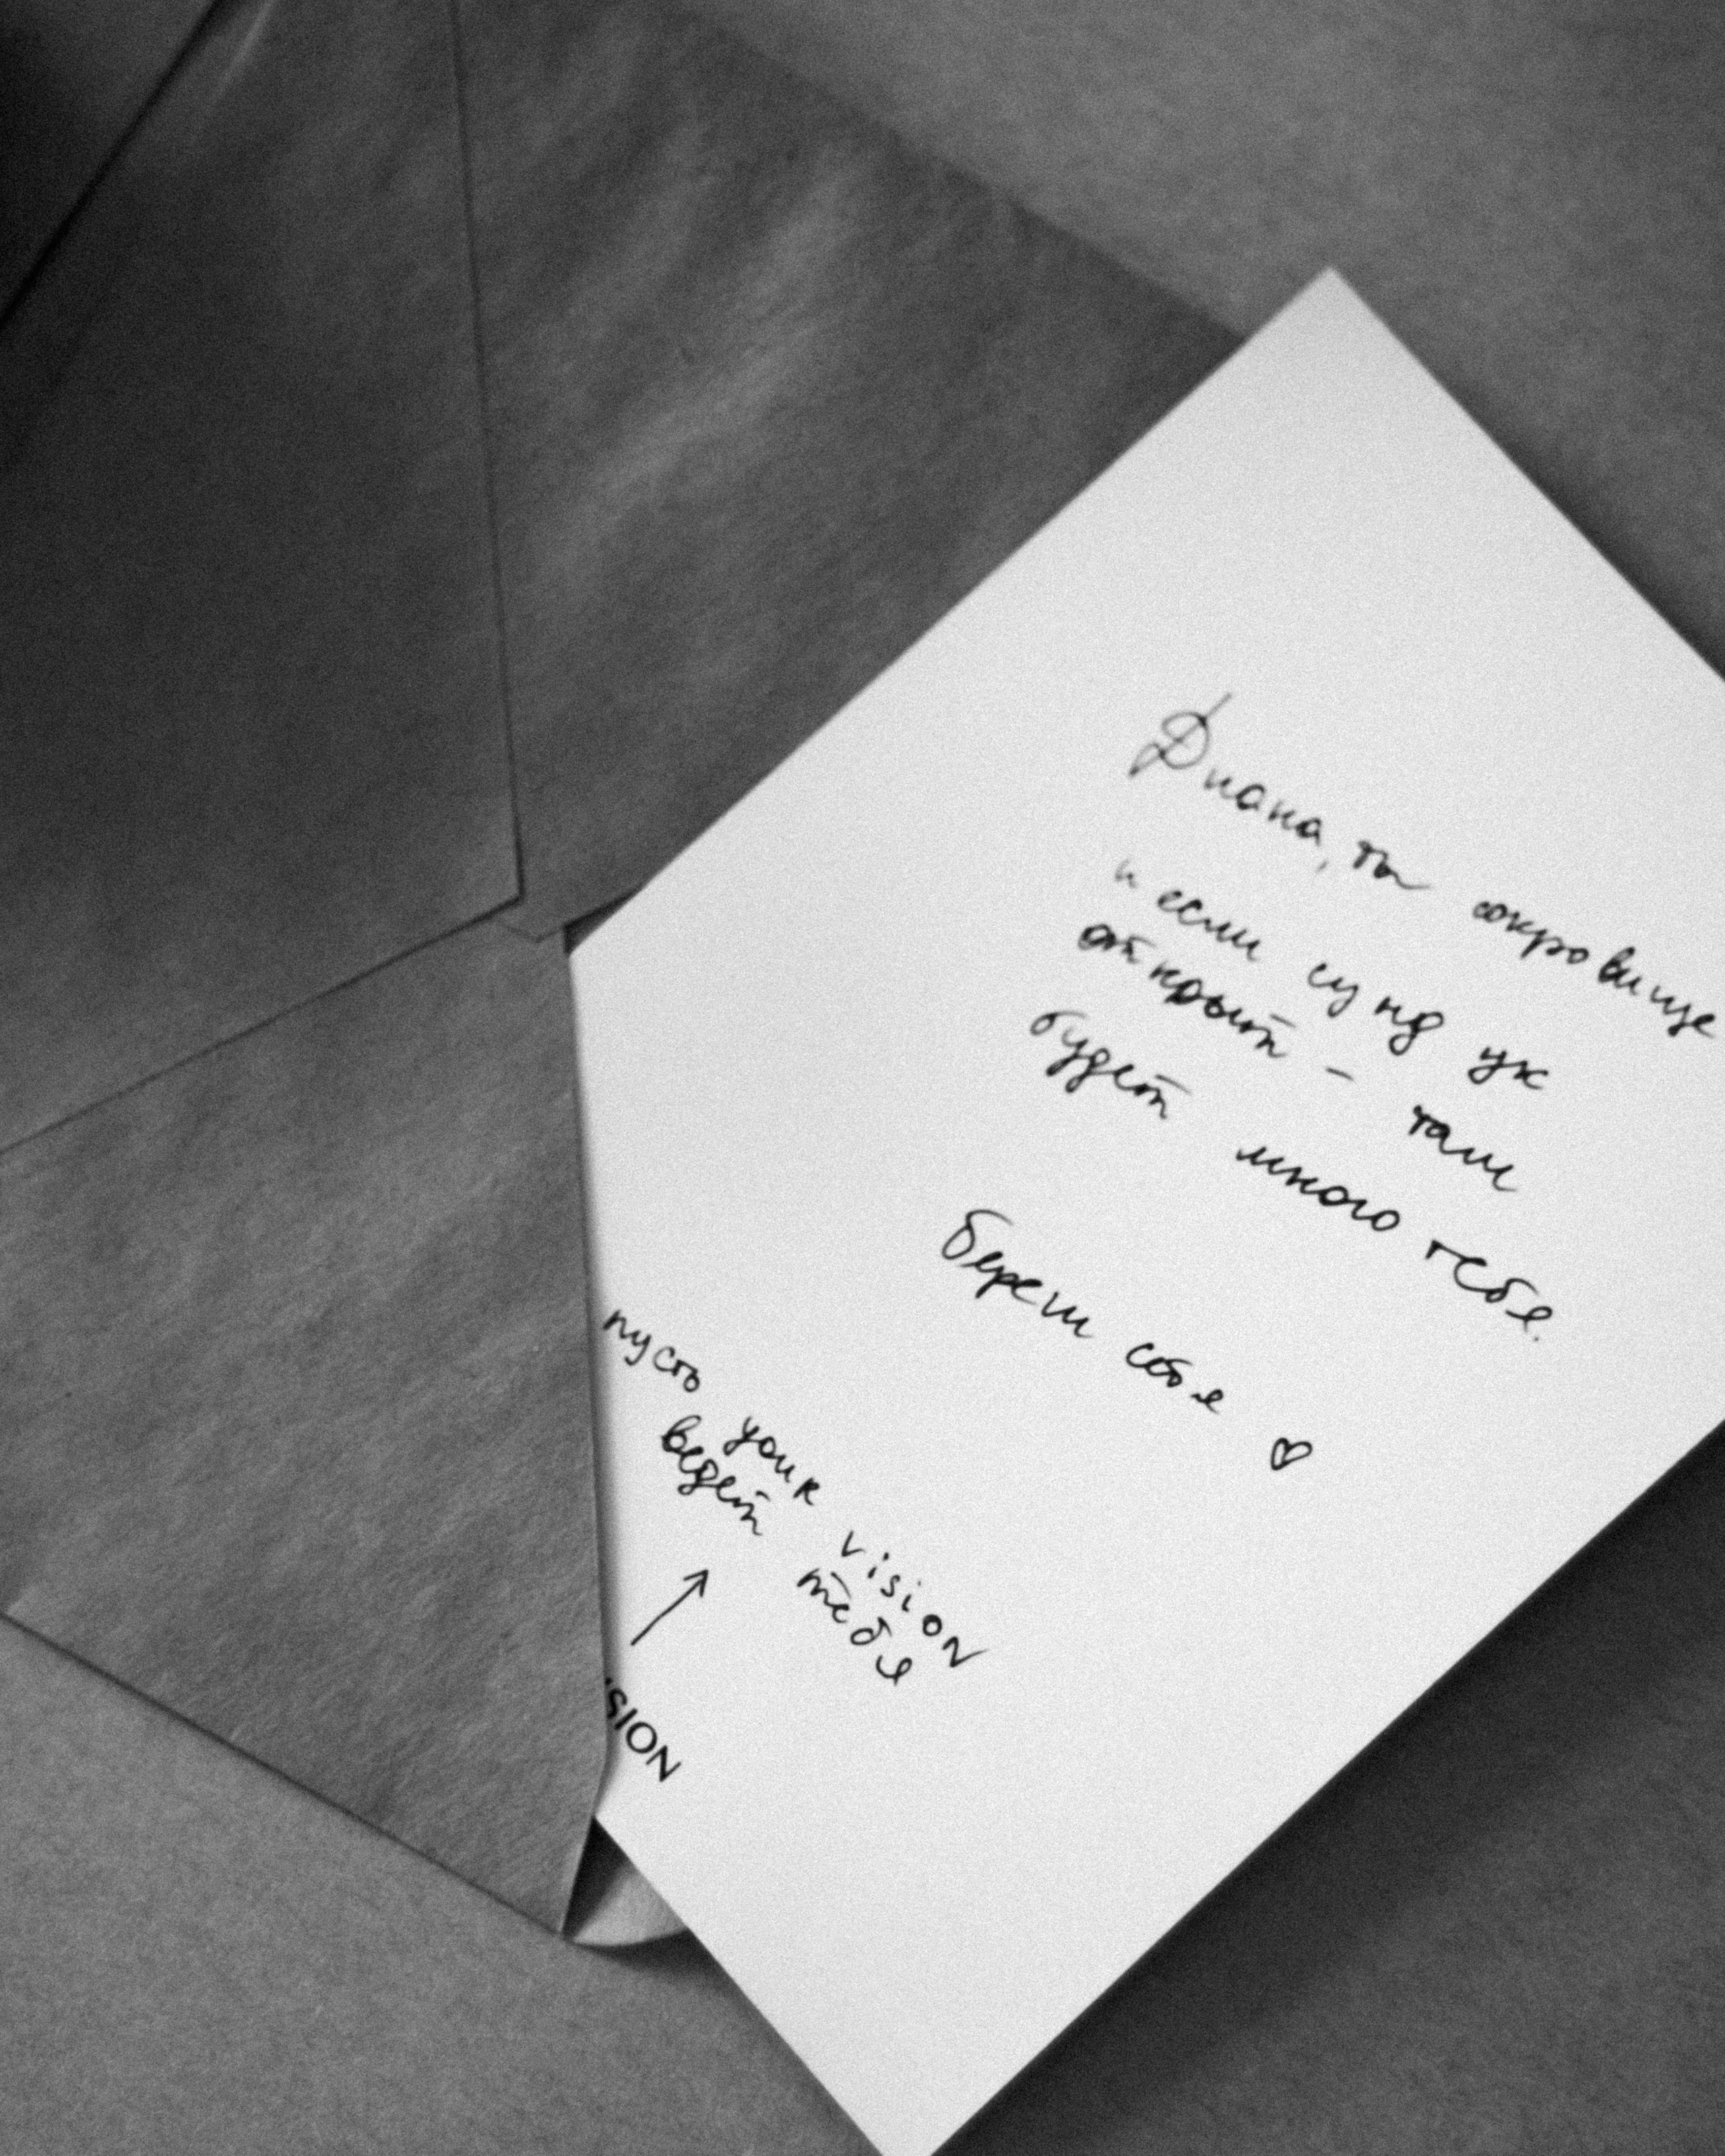 Диана, ты сокровище
и если сундук
открыт – там
будет много тебя.
береги себя ♡
пусть your vision
ведет тебя
→
SION